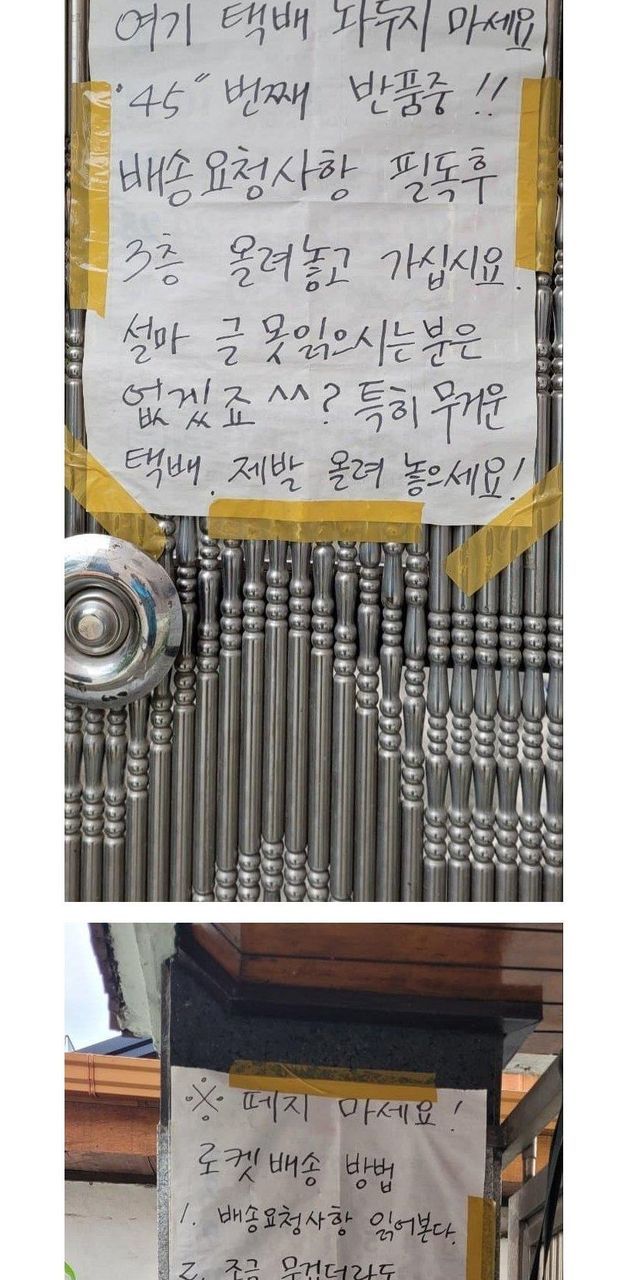 여기 택배 놔두지 마세요
"45" 번째 반품중!!
배송요청사항 필독후
3층 올려놓고 가십시요.
설마 글 못읽으시는분은
없겠죠^^? 특히 무거운
택배. 제발 올려 놓으세요!
※ 떼지 마세요!
로켓배송 방법
1. 배송요청사항 읽어본다.
2. 조금 무겁더라도